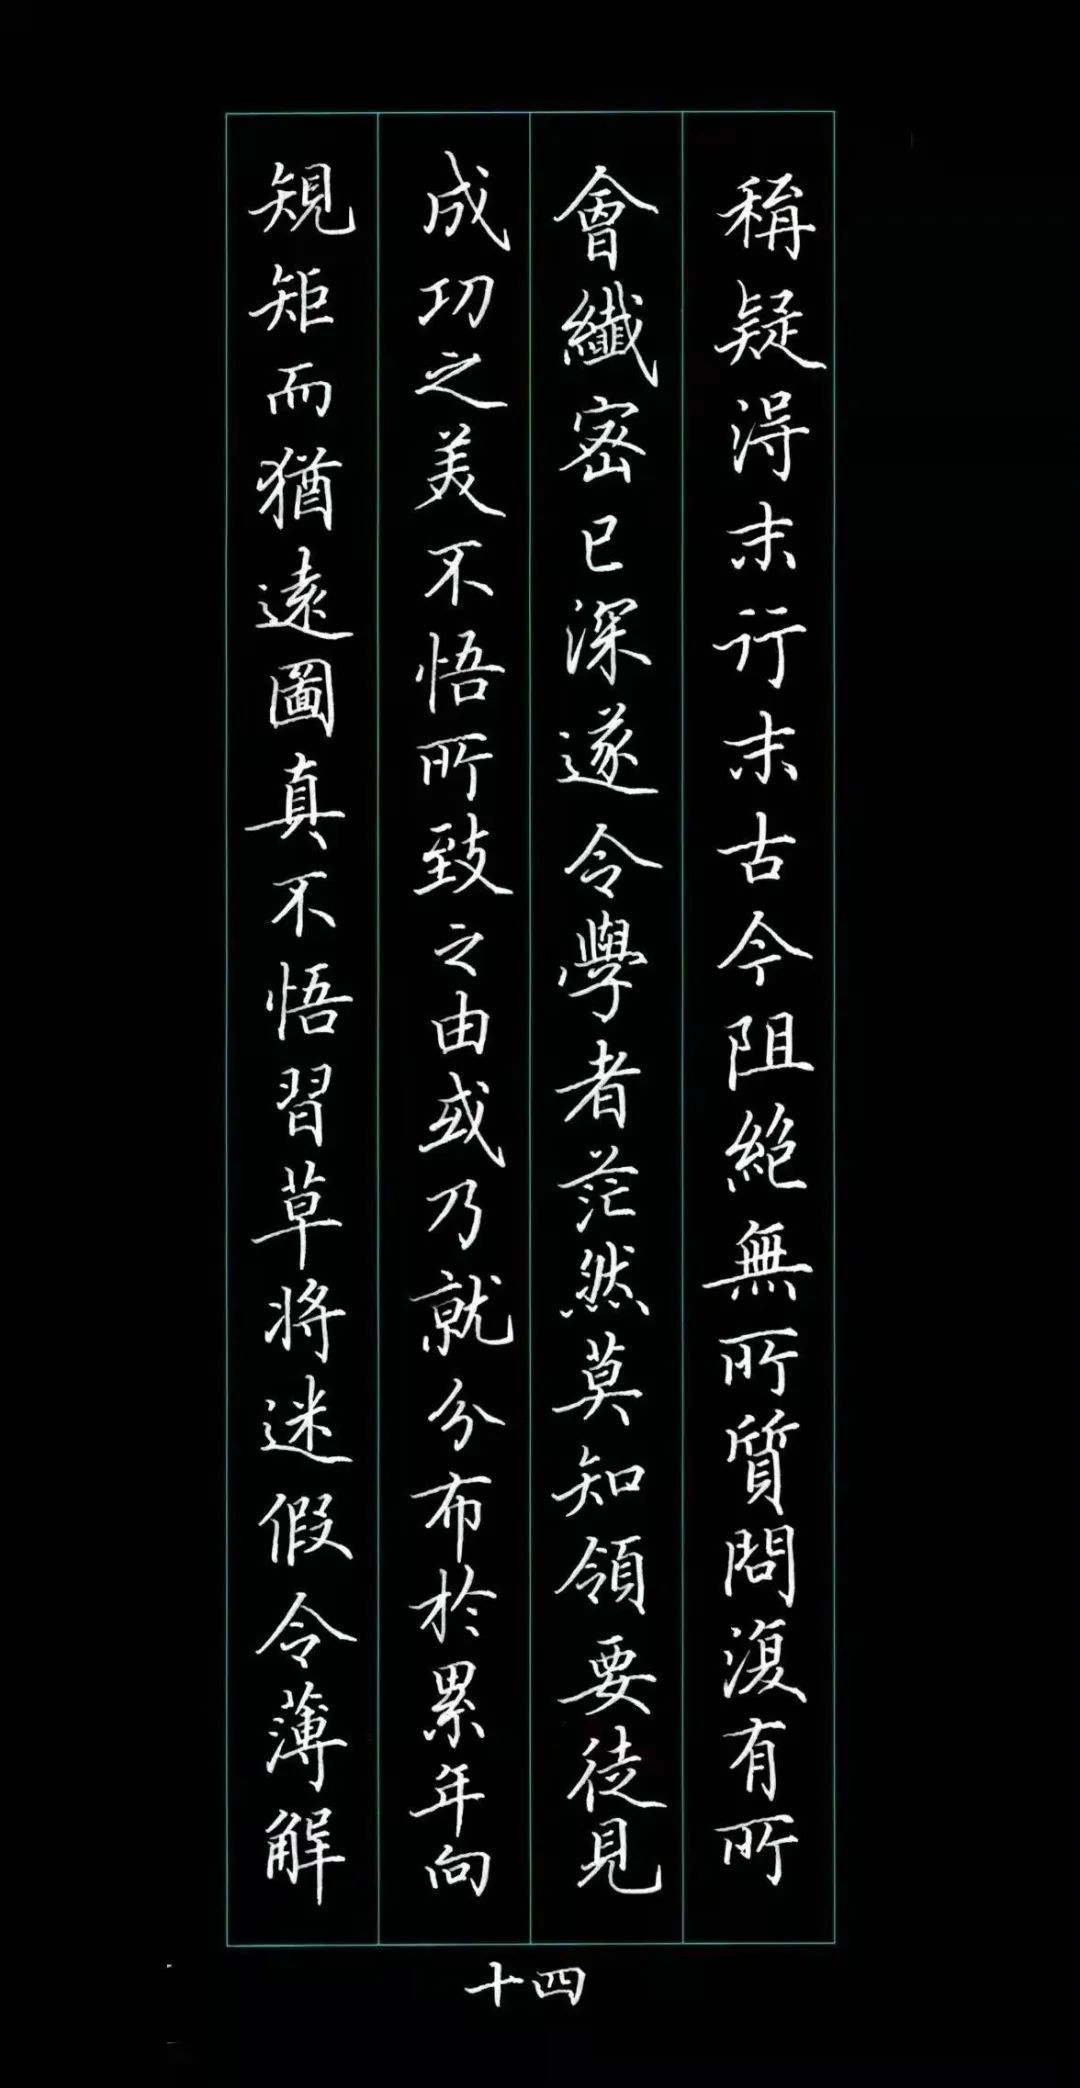 稱疑得末行末古今阻絕無所質問復有所
會纖密已深遂令學者茫然莫知領要徒見
成功之美不悟所致之由或乃就分布於累年向
規矩而猶遠圖真不悟習草將迷假令薄解
十四